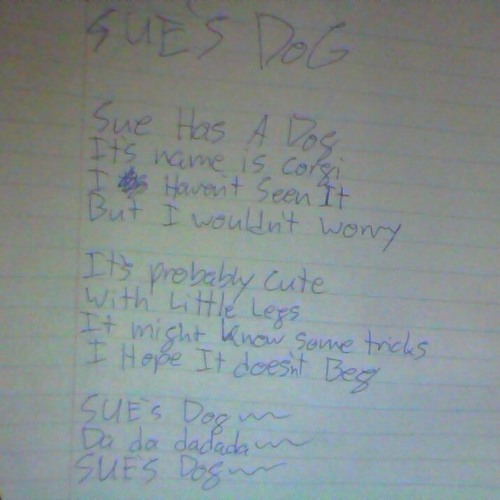 SUE'S DOG
Sue Has A Dog
It's name is corgi
I Haven't Seen It
But I wouldn't worry
It's probably cute
With Little Legs
It might know some tricks
I Hope It doesn't Beg
SUE's Dog~~
Da da dadada~~
SUE'S Dog~~